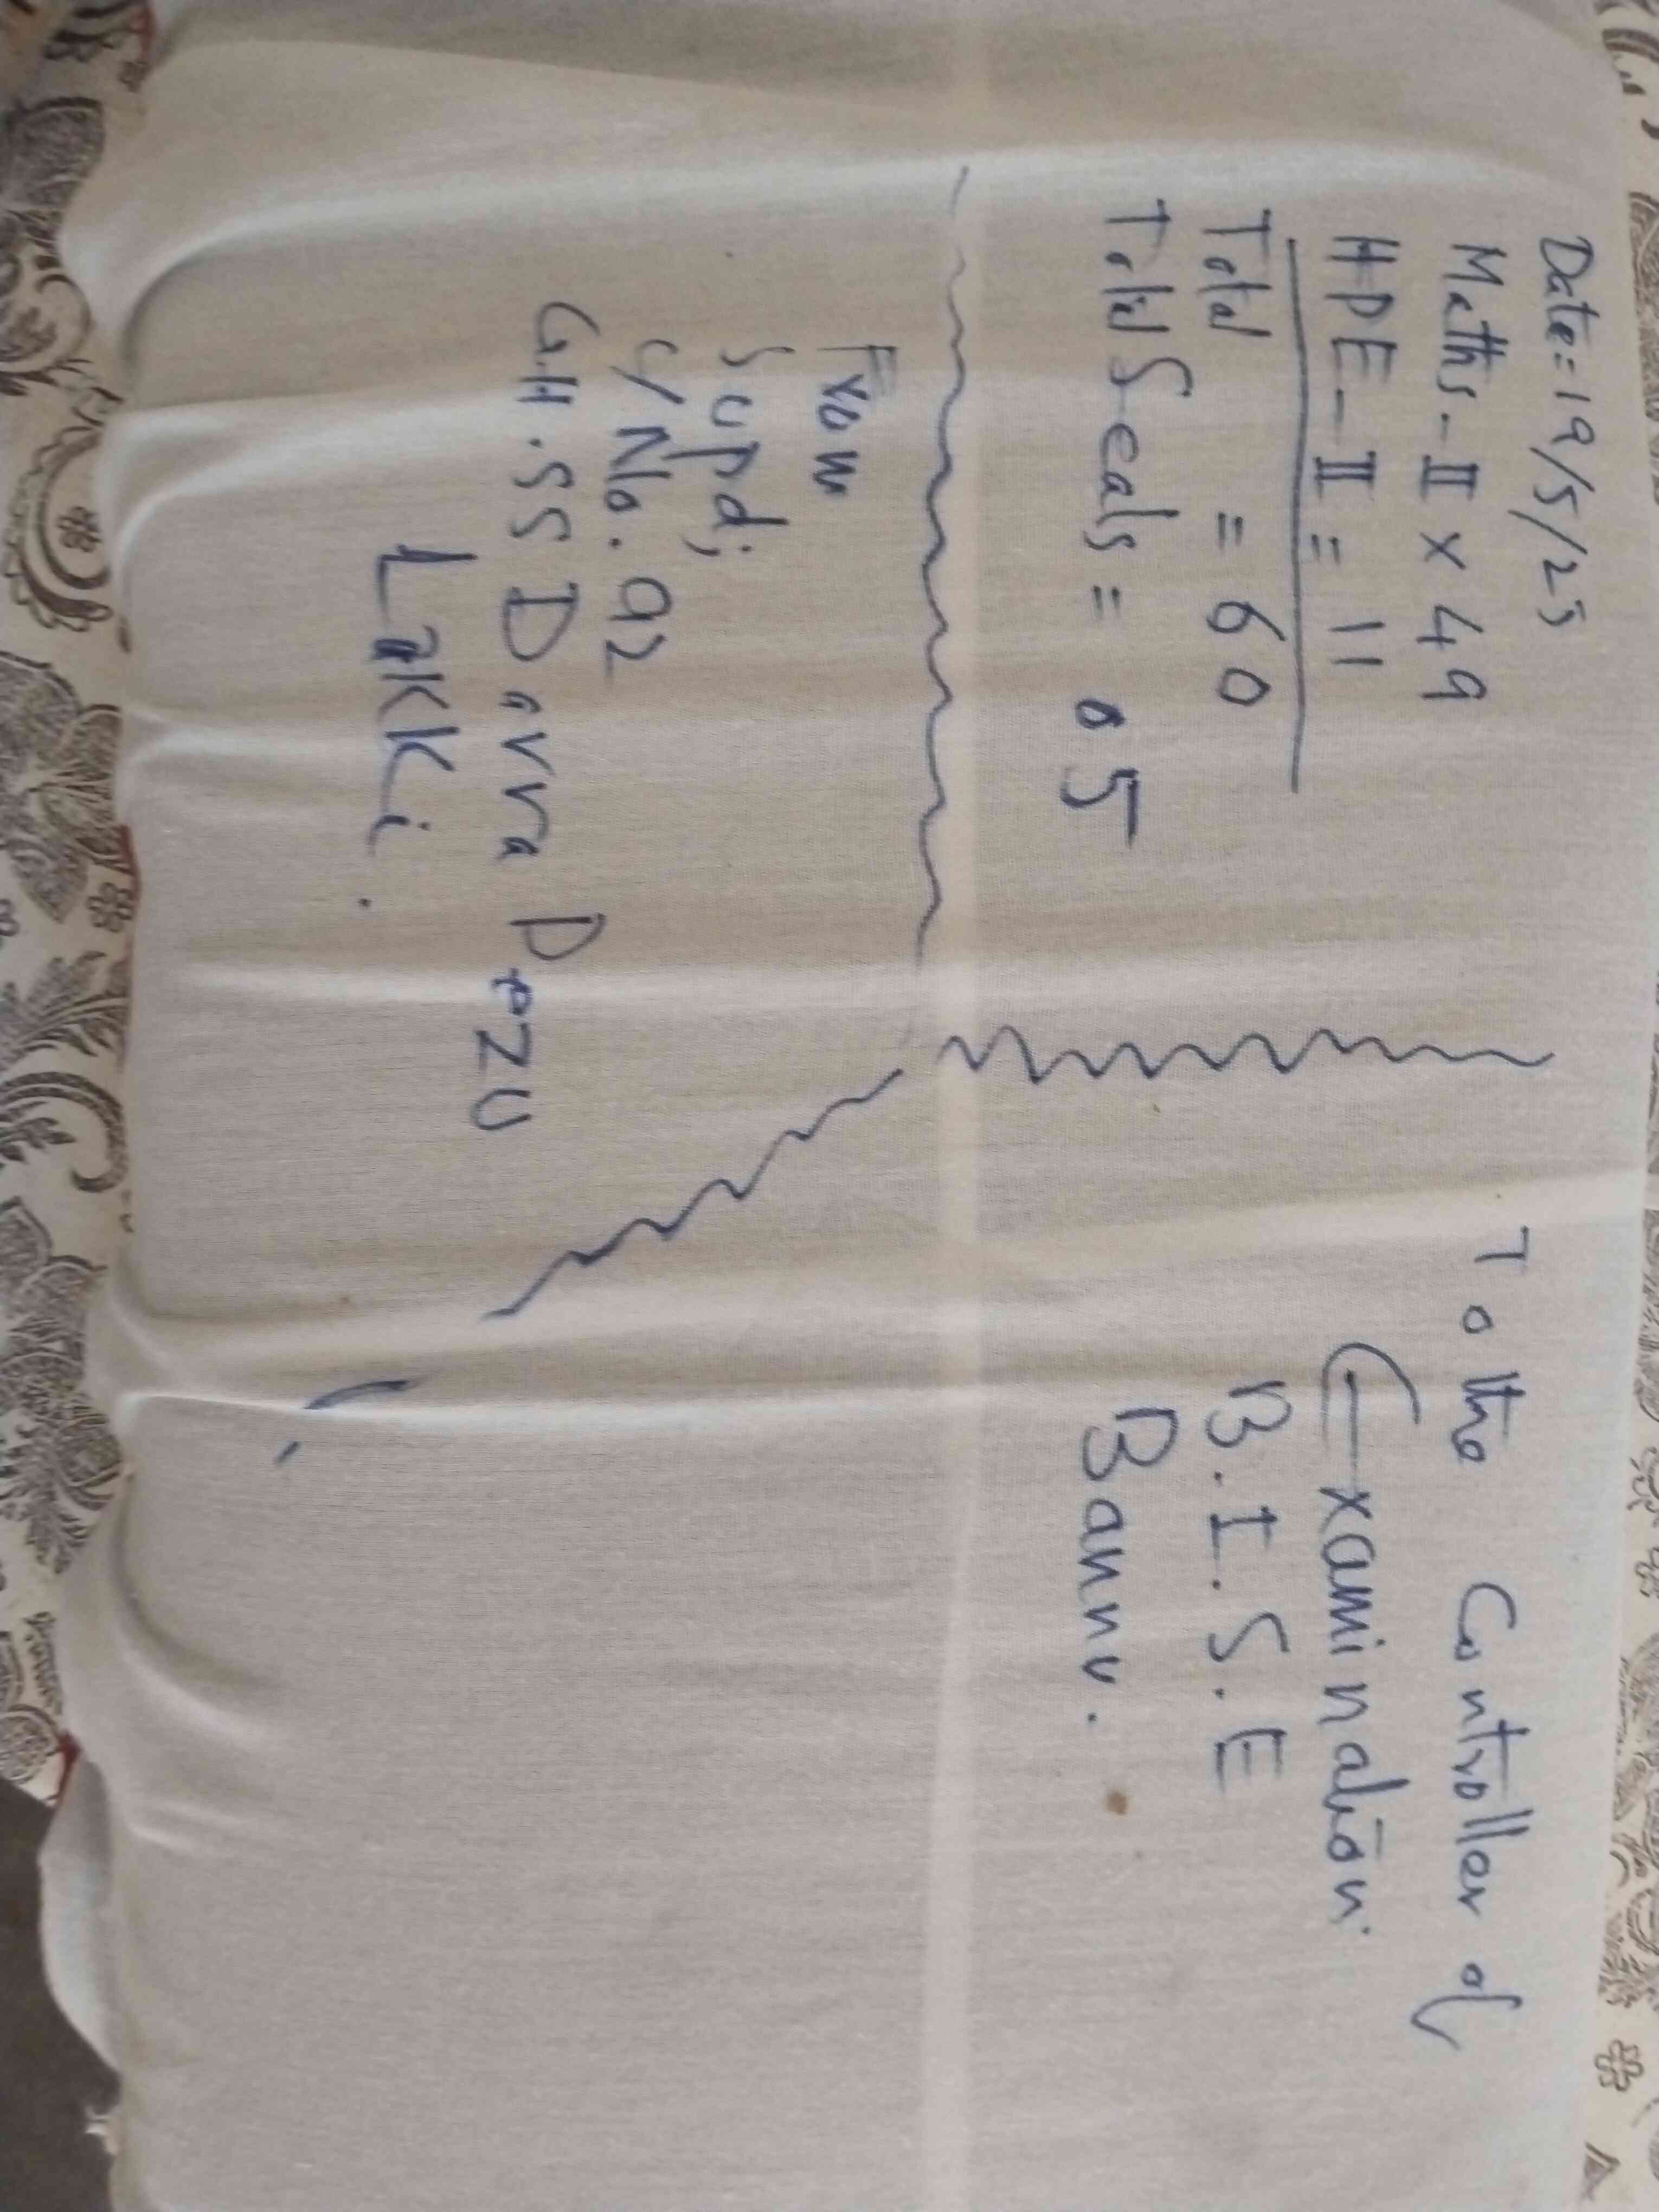 Date=19/5/25
Maths-II x 49
HPE-II = 11
Total = 60
Total Seals = 05
To the Controller of
Examination
B.I.S.E
Bannu.
From
Supd;
C/No. 92
G.H.SS Darra Pezu
Lakki.